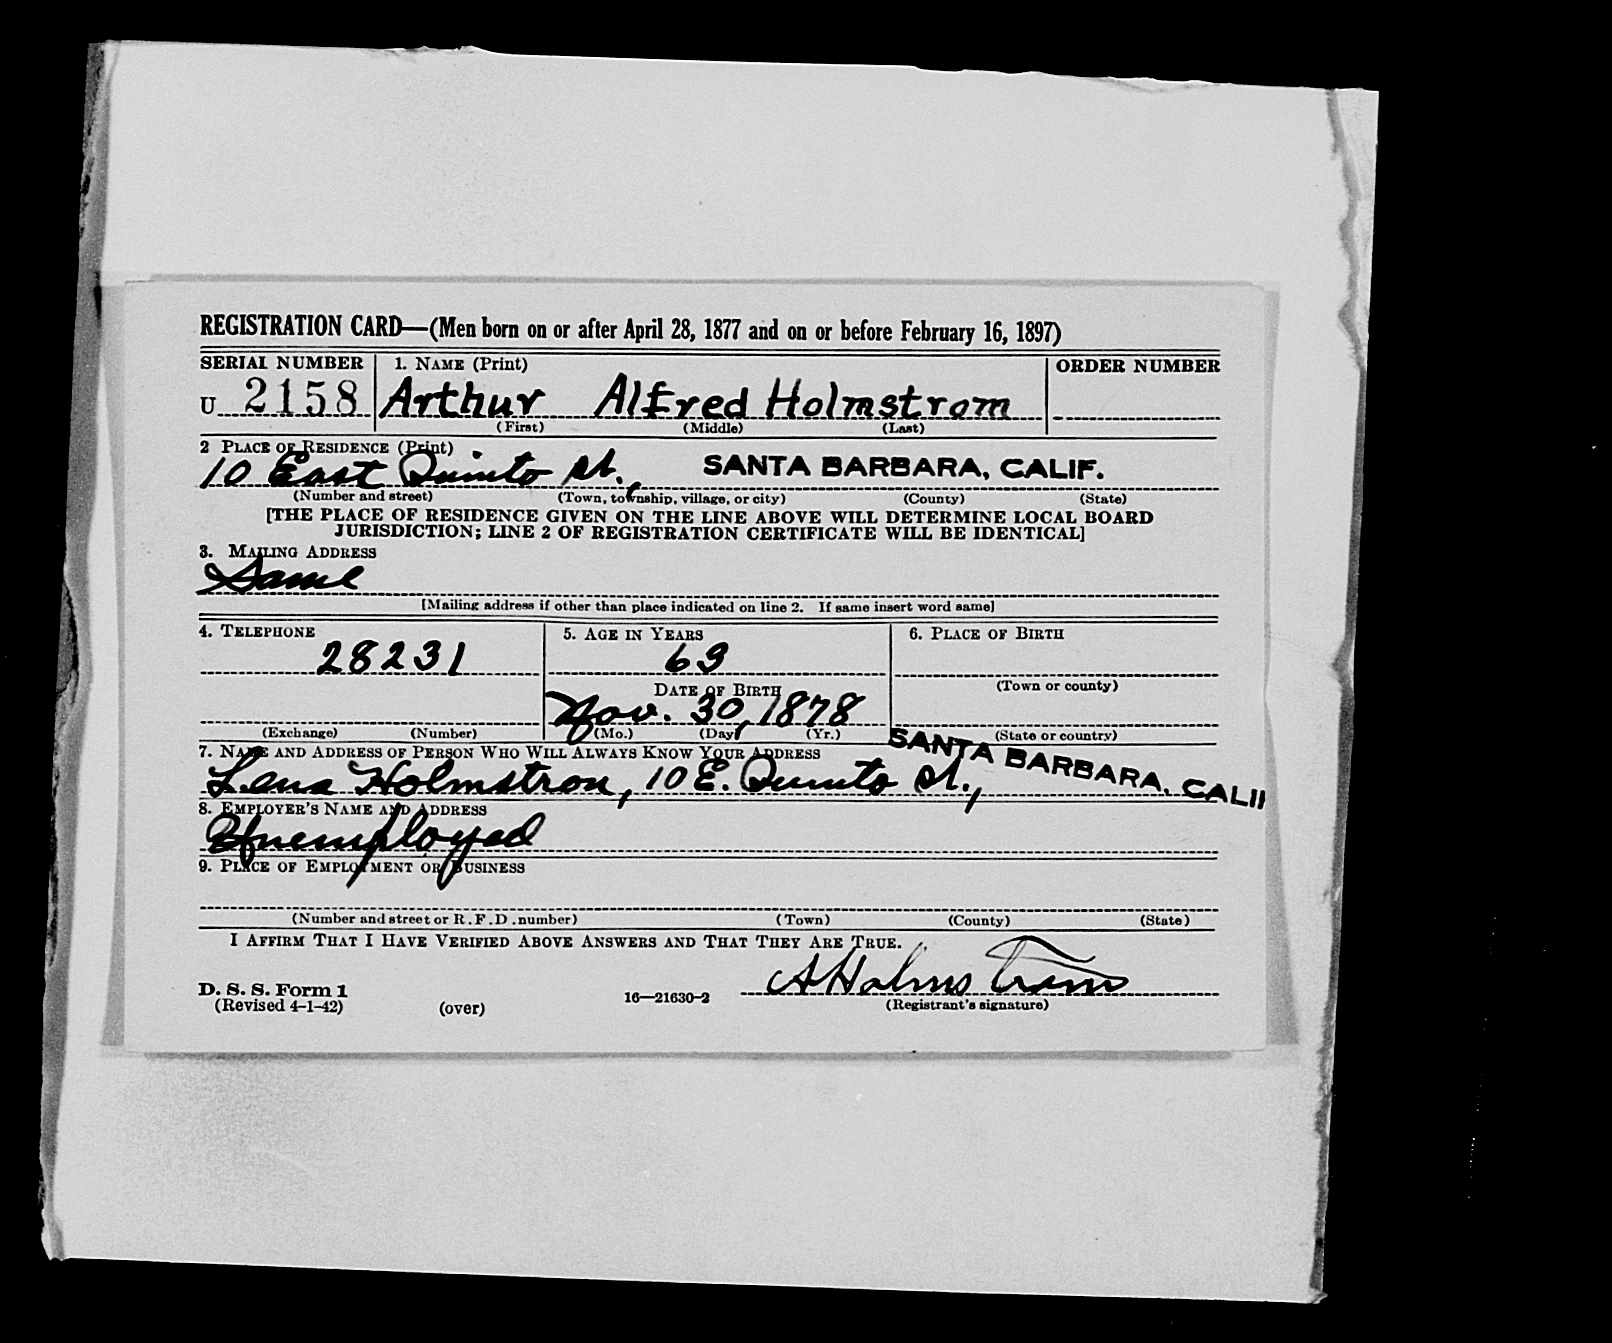 REGISTRATION CARD—(Men born on or after April 28, 1877 and on or before February 16, 1897)
SERIAL NUMBER 1. NAME (Print) ORDER NUMBER
U 2158 Arthur Alfred Holmstrom
(First) (Middle) (Last)
2 PLACE OF RESIDENCE (Print)
10 East Quinto St., SANTA BARBARA, CALIF.
(Number and street) (Town, township, village, or city) (County) (State)
[THE PLACE OF RESIDENCE GIVEN ON THE LINE ABOVE WILL DETERMINE LOCAL BOARD
JURISDICTION; LINE 2 OF REGISTRATION CERTIFICATE WILL BE IDENTICAL]
3. MAILING ADDRESS
Same
[Mailing address if other than place indicated on line 2. If same insert word same]
4. TELEPHONE 5. AGE IN YEARS 6. PLACE OF BIRTH
28231 63
DATE OF BIRTH (Town or county)
Nov. 30, 1878
(Exchange) (Number) (Mo.) (Day) (Yr.) (State or country)
7. NAME AND ADDRESS OF PERSON WHO WILL ALWAYS KNOW YOUR ADDRESS
Lena Holmstrom, 10 E. Quinto St., SANTA BARBARA, CALI
8. EMPLOYER'S NAME AND ADDRESS
Unemployed
9. PLACE OF EMPLOYMENT OR BUSINESS
(Number and street or R.F.D. number) (Town) (County) (State)
I AFFIRM THAT I HAVE VERIFIED ABOVE ANSWERS AND THAT THEY ARE TRUE.
A Holmstrom
D. S. S. Form 1
(Revised 4-1-42) (over) 16—21630-2 (Registrant's signature)